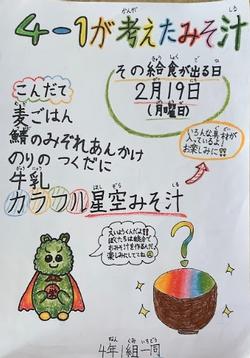 4-1が考えたみそ汁
その給食が出る日
2月19日
(月曜日)
こんだて
麦ごはん
鯖のみぞれあんかけ
のりのつくだに
牛乳
カラフル星空みそ汁
いろんな具材が
入っているよ!
お楽しみに!!
4年1組一同